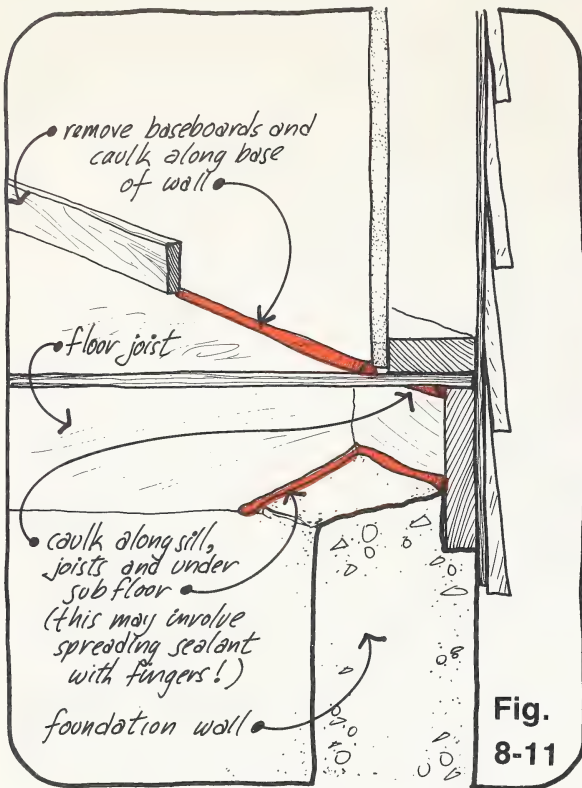 remove baseboards and
caulk along base
of wall
floor joist
caulk along sill,
joists and under
subfloor
(this may involve
spreading sealant
with fingers!)
foundation wall
Fig.
8-11